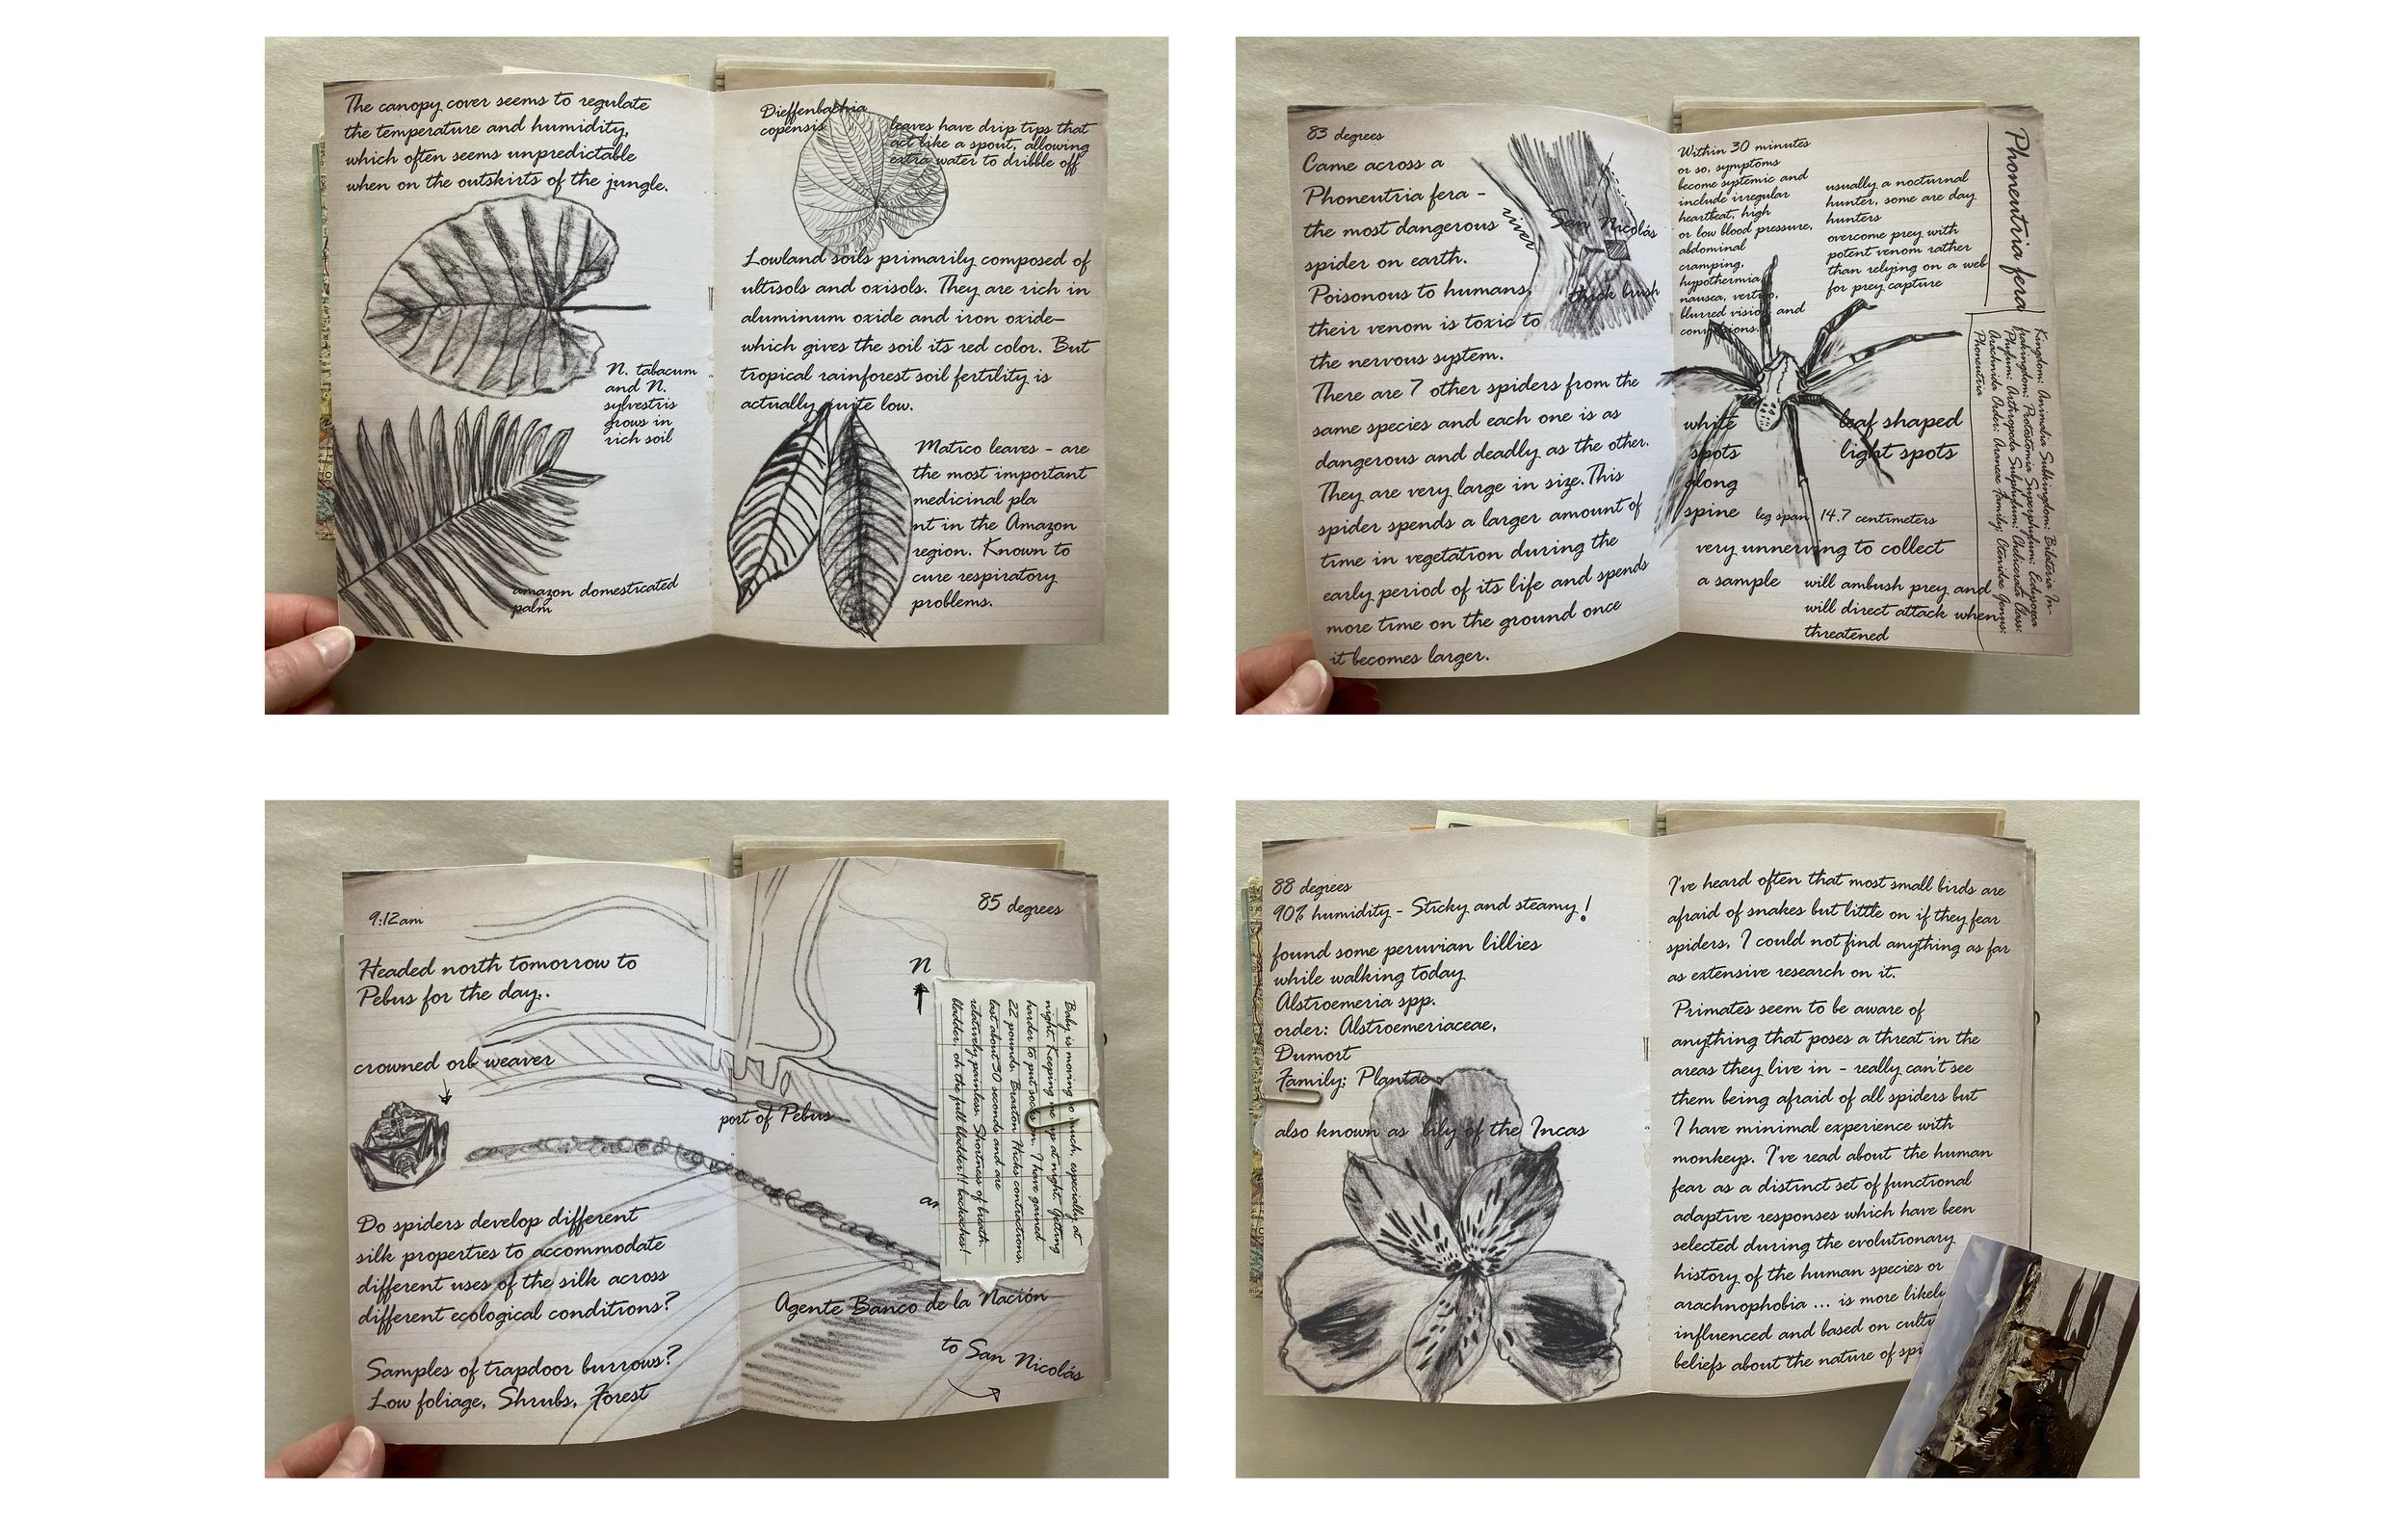 The canopy cover seems to regulate
the temperature and humidity,
which often seems unpredictable
when on the outskirts of the jungle.
N. tabacum
and N.
sylvestris
grows in
rich soil
amazon domesticated
palm
Dieffenbachia
copensis
leaves have drip tips that
act like a spout, allowing
extra water to dribble off
Lowland soils primarily composed of
ultisols and oxisols. They are rich in
aluminum oxide and iron oxide-
which gives the soil its red color. But
tropical rainforest soil fertility is
actually quite low.
Matico leaves - are
the most important
medicinal pla
nt in the Amazon
region. Known to
cure respiratory
problems.
83 degrees
Came across a
Phoneutria fera -
the most dangerous
spider on earth.
Poisonous to humans,
their venom is toxic to
the nervous system.
There are 7 other spiders from the
same species and each one is as
dangerous and deadly as the other.
They are very large in size. This
spider spends a larger amount of
time in vegetation during the
early period of its life and spends
more time on the ground once
it becomes larger.
river
San Nicolás
thick brush
Within 30 minutes
or so, symptoms
become systemic and
include irregular
heartbeat, high
or low blood pressure,
abdominal
cramping,
hypothermia,
nausea, vertigo,
blurred vision, and
convulsions.
usually a nocturnal
hunter, some are day
hunters
overcome prey with
potent venom rather
than relying on a web
for prey capture
white
spots
along
spine
leaf shaped
light spots
leg span 14.7 centimeters
very unnerving to collect
a sample
will ambush prey and
will direct attack when
threatened
Phoneutria fera
Kingdom: Animalia Subkingdom: Bilateria In-
frakingdom: Protostomia Superphylum: Ecdysozoa
Phylum: Arthropoda Subphylum: Chelicerata Class:
Arachnida Order: Araneae Family: Ctenidae Genus:
Phoneutria
9:12am
Headed north tomorrow to
Pebus for the day..
crowned orb weaver
Do spiders develop different
silk properties to accommodate
different uses of the silk across
different ecological conditions?
Samples of trapdoor burrows?
Low foliage, Shrubs, Forest
85 degrees
N
port of Pebus
Baby is moving so much, especially at
night. Keeping me up at night. Getting
harder to put socks on. I have gained
22 pounds. Braxton Hicks contractions
last about 30 seconds and are
relatively painless. Shortness of breath.
bladder, oh the full bladder!!! backaches!
Agente Banco de la Nación
to San Nicolás
88 degrees
90% humidity - Sticky and steamy!
found some peruvian lillies
while walking today
Alstroemeria spp.
order: Alstroemeriaceae,
Dumort
Family: Plantae
also known as lily of the Incas
I've heard often that most small birds are
afraid of snakes but little on if they fear
spiders. I could not find anything as far
as extensive research on it.
Primates seem to be aware of
anything that poses a threat in the
areas they live in - really can't see
them being afraid of all spiders but
I have minimal experience with
monkeys. I've read about the human
fear as a distinct set of functional
adaptive responses which have been
selected during the evolutionary
history of the human species or
arachnophobia ... is more likely
influenced and based on
beliefs about the nature of